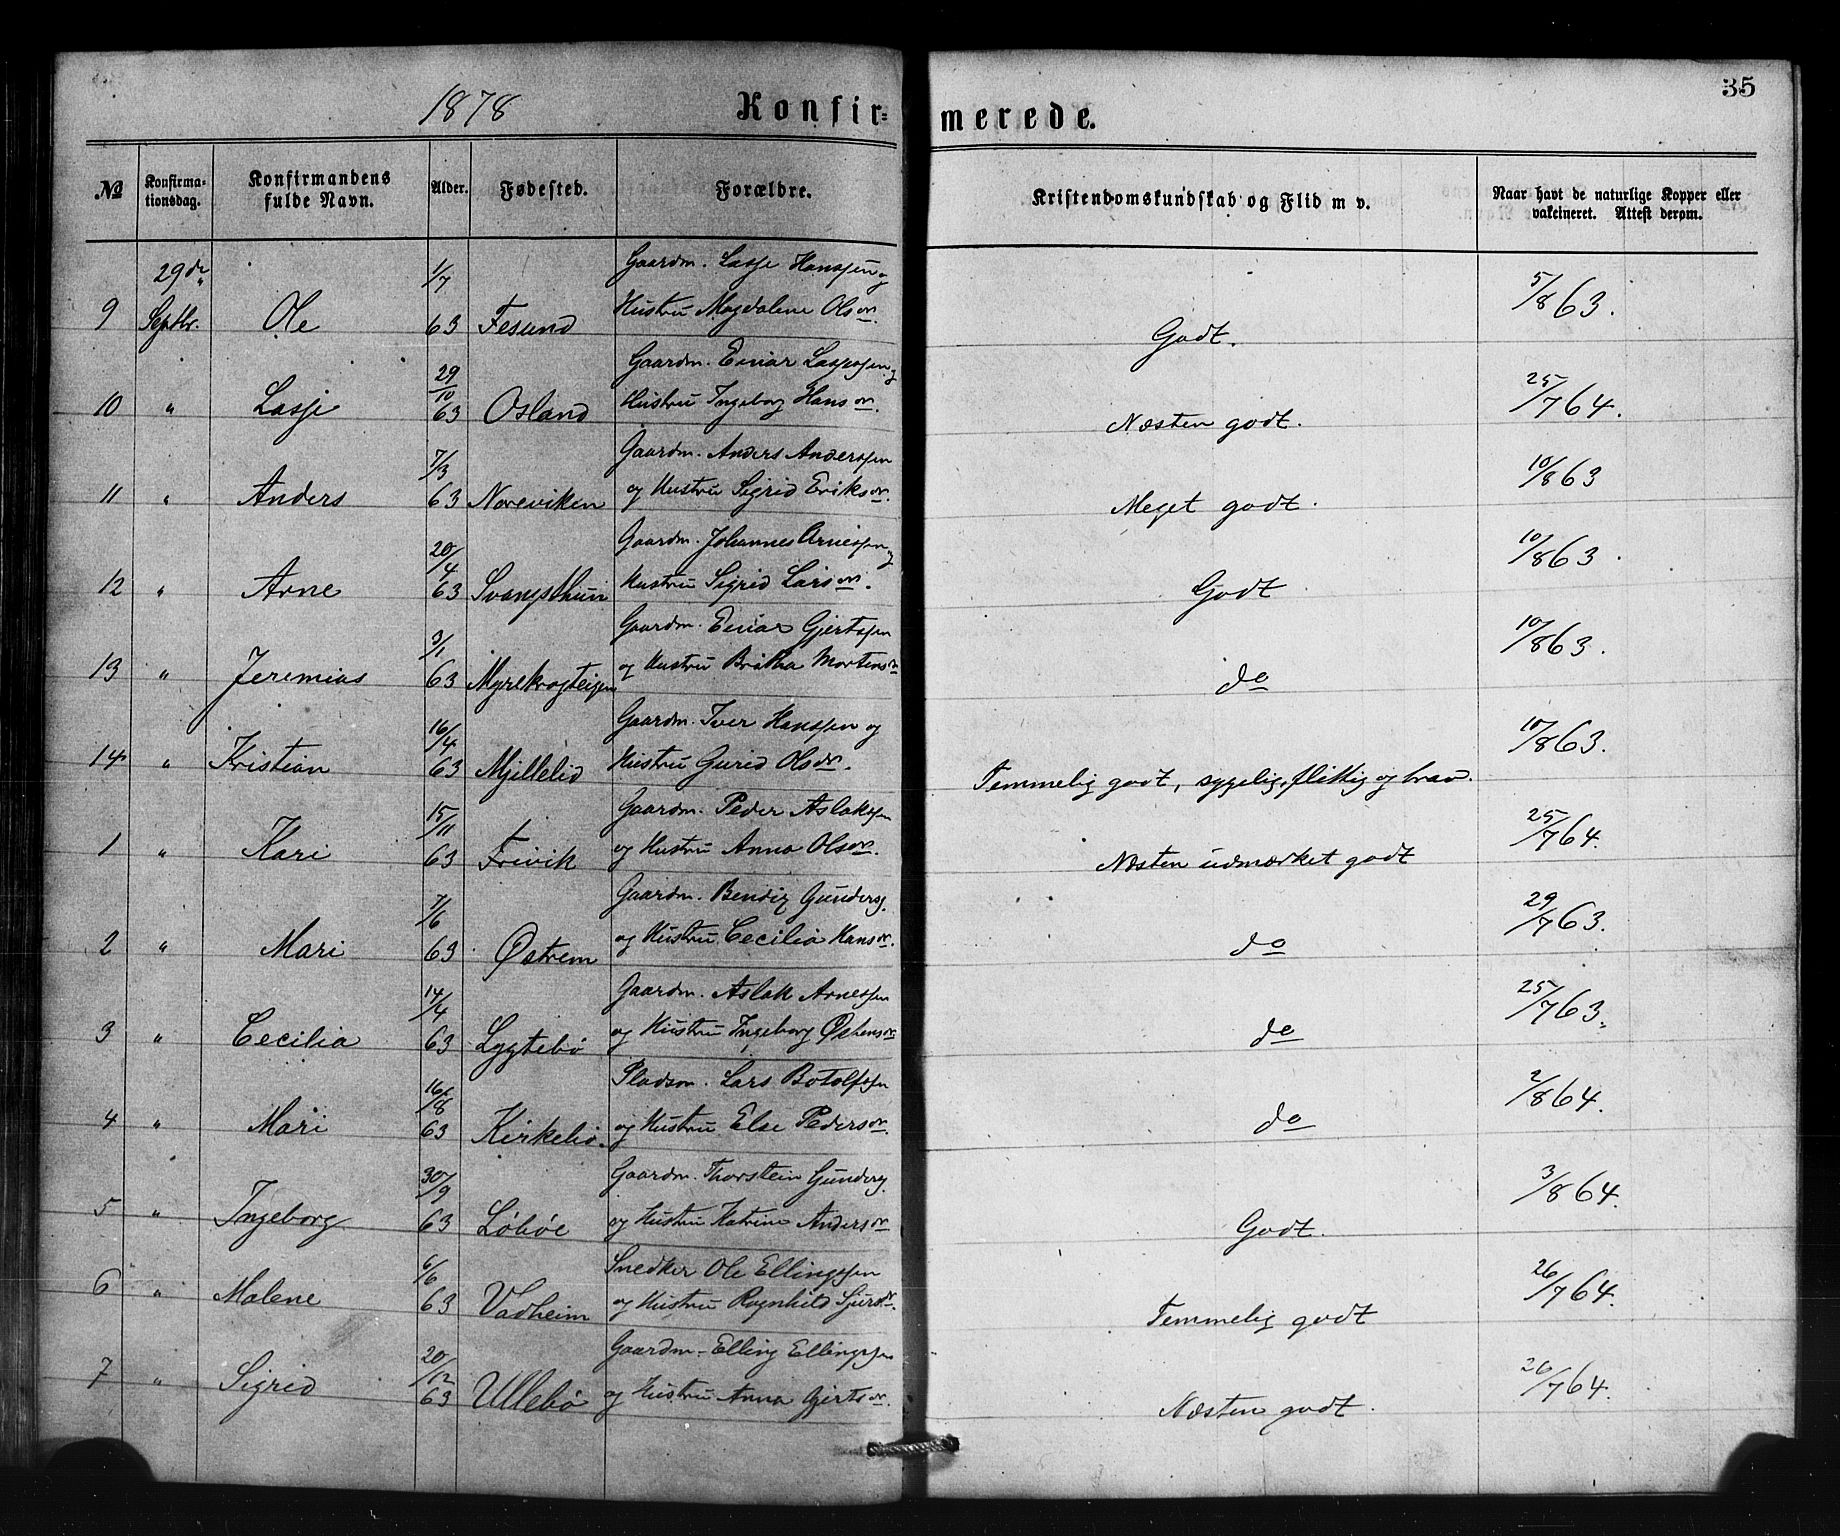 35
1878 Konfir=merede.
№ Konfirma-tionsdag. Konfirmandens fulde Navn. Alder. Fødested. Forældre. Kristendomskundskab og Flid m v. Naar havt de naturlige Kopper eller vakcineret. Attest derom.
29de 1/7 Gaardm. Lasse Hanssen og
9 Septbr. Ole 63 Fesund Hustru Magdalene Olsdr. Godt. 5/8 63.
29/10 Gaardm. Einar Lassesen og
10 " Lasse 63 Osland Hustru Ingeborg Hansdr. Næsten godt. 25/7 64.
7/3 Gaardm. Anders Anderssen
11 " Anders 63 Noreviken og Hustru Sigrid Eriksdr. Meget godt. 10/8 63
20/4 Gaardm. Johannes Arnessen og
12 " Arne 63 Svangsthun Hustru Sigrid Larsdr. Godt 10/8 63.
3/1 Gaardm. Einar Gjertssen
13 " Jeremias 63 Myrekrogteigen og Hustru Britha Mortensdr do 10/8 63.
16/4 Gaardm. Iver Hanssen og
14 " Kristian 63 Mjellelid Hustru Gurid Olsdr. Temmelig godt, sygelig, flittig og brav. 10/8 63.
15/11 Gaardm. Peder Aslakssen
1 " Kari 63 Frivik og Hustru Anna Olsdr. Næsten udmærket godt 25/7 64.
7/6 Gaardm. Bendix Gunders.
2 " Mari 63 Østrem og Hustru Cecilia Hansdr. do 29/7 63.
14/4 Gaardm. Aslak Arnessen
3 " Cecilia 63 Lygtebø og Hustru Ingeborg Østensdr do 25/7 63.
16/8 Pladsm. Lars Botolfssen
4 " Mari 63 Kirkebø. og Hustru Else Pedersdr. do 2/8 64.
30/9 Gaardm. Thorstein Gunders.
5 " Ingeborg 63 Løbøe og Hustru Katrine Andersdr Godt. 3/8 64.
6/6 Snedker Ole Ellingssen
6 " Malene 63 Vadheim og Hustru Ragnhild Sjursdr. Temmelig godt 26/7 64.
20/12 Gaardm. Elling Ellingssen
7 " Sigrid 63 Ullebø og Hustru Anna Gjertsdr. Næsten godt. 26/7 64.